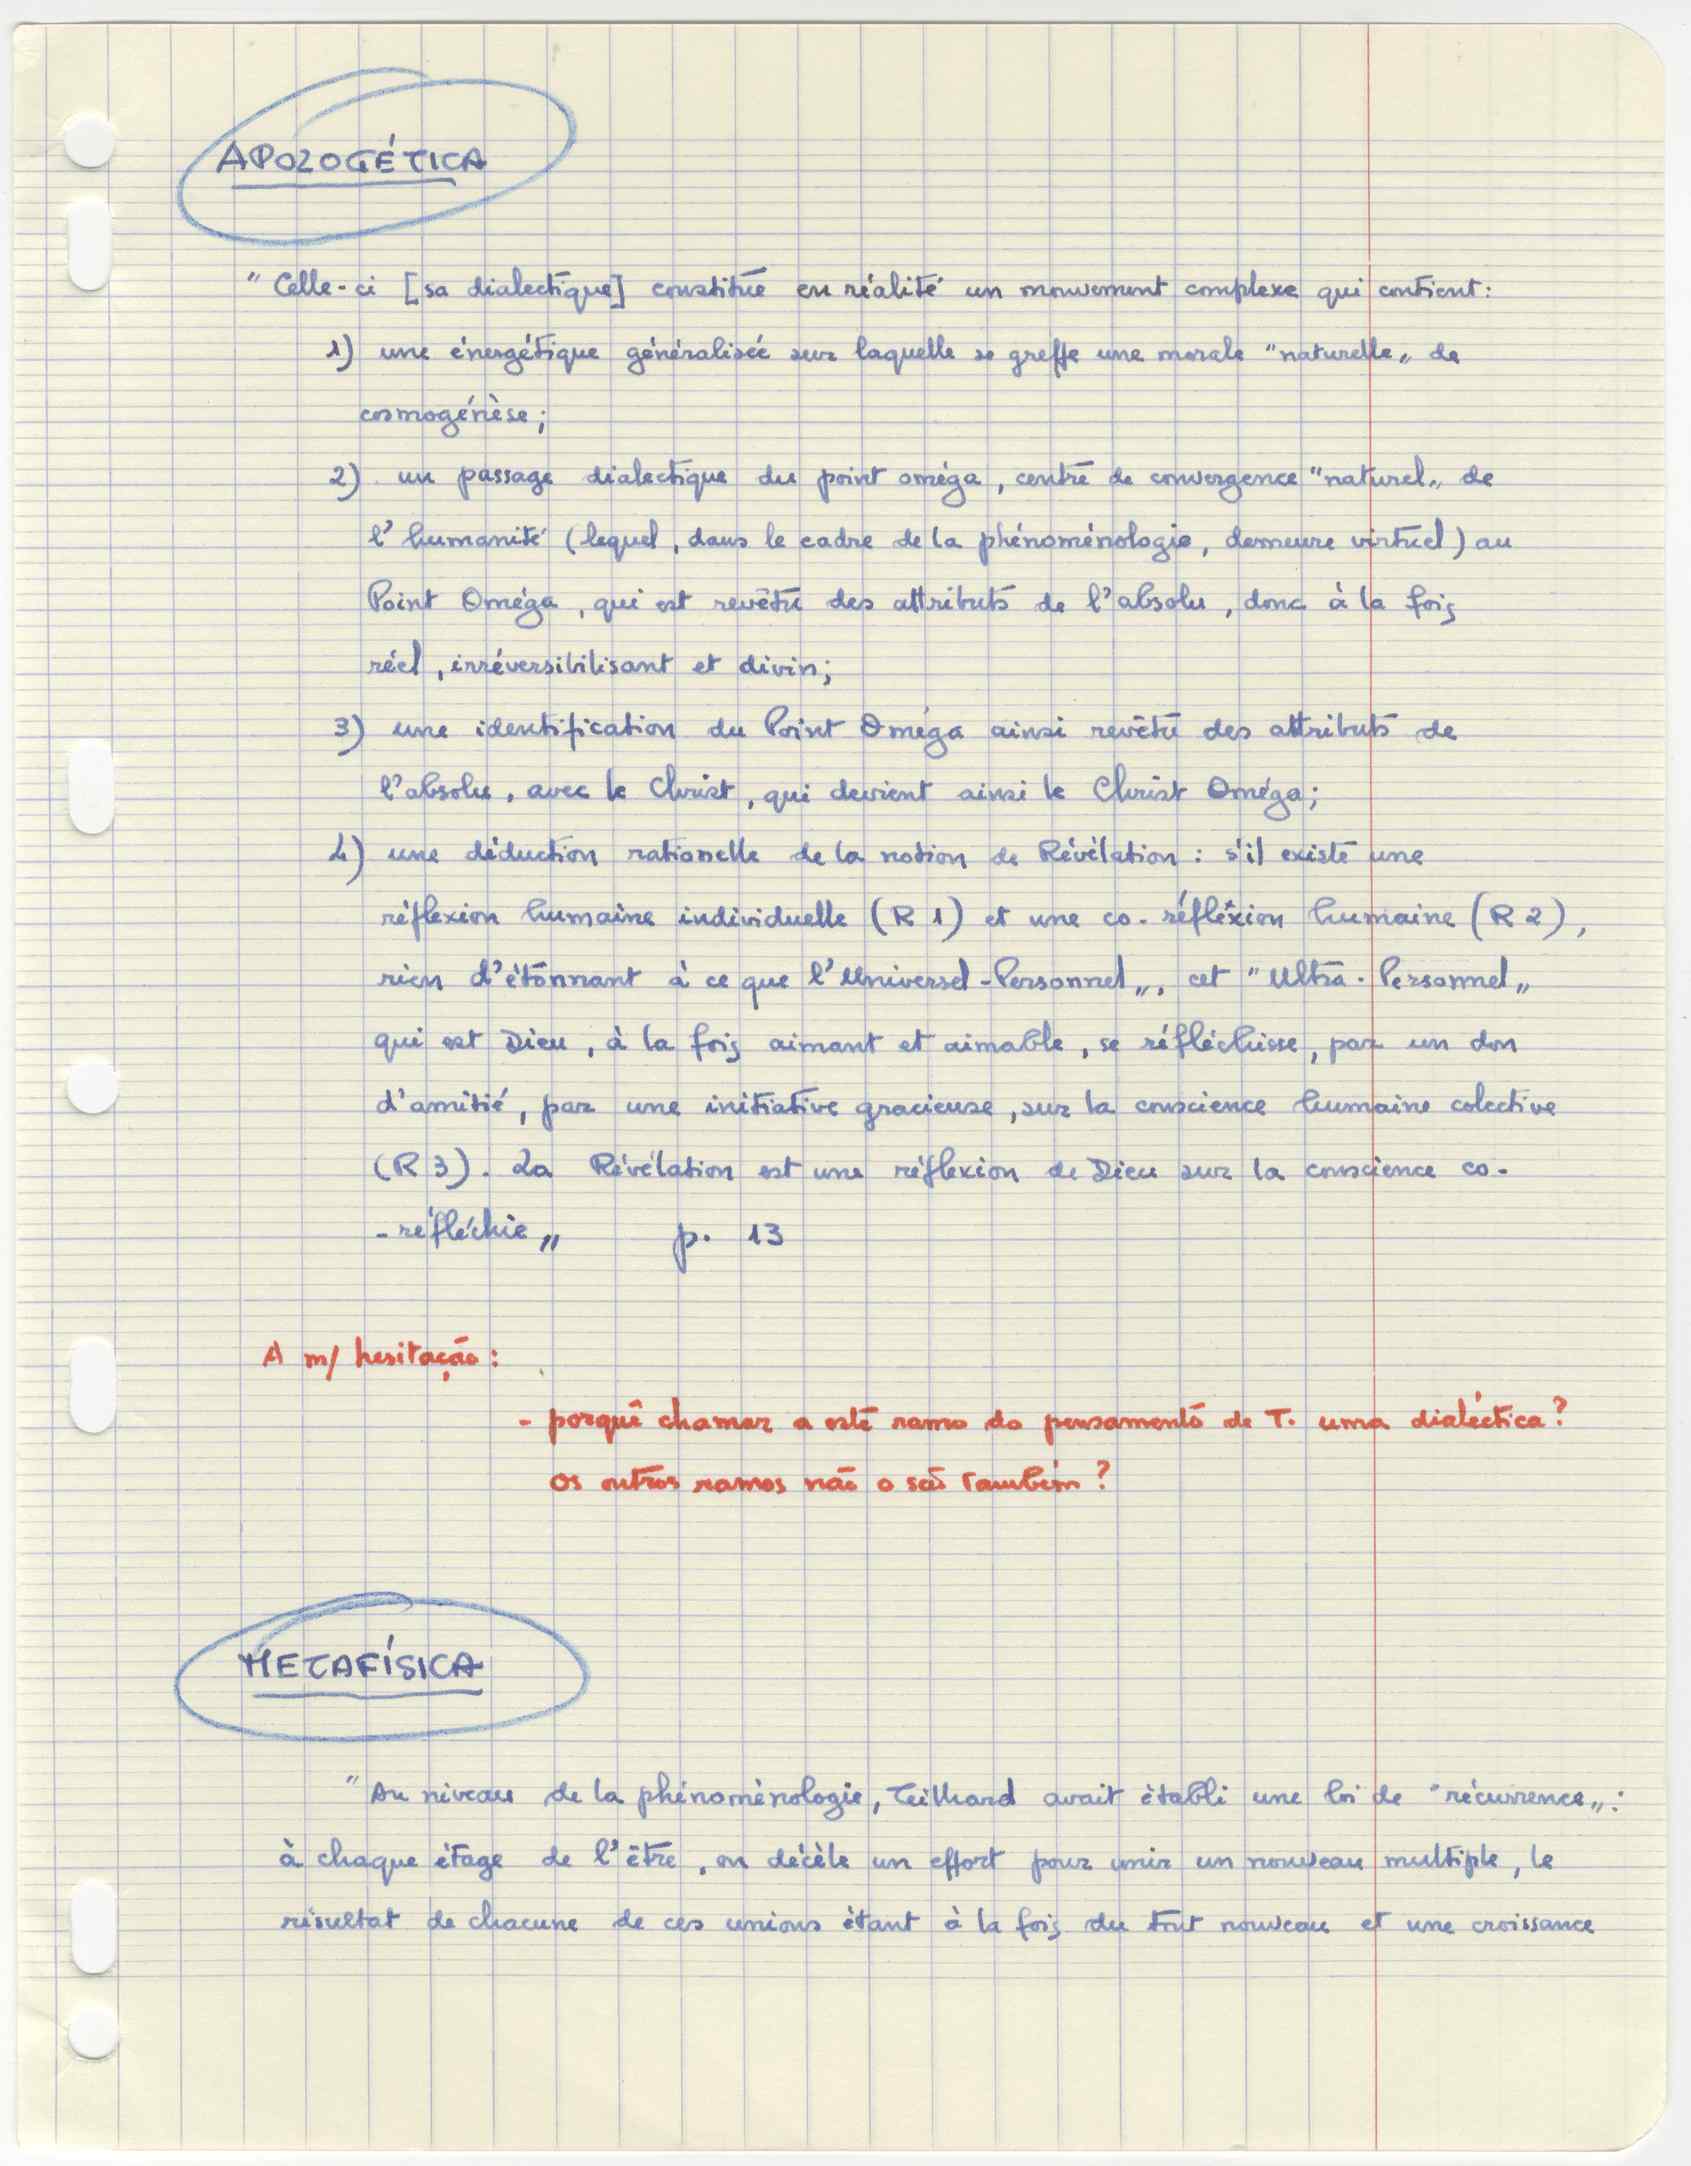 APOLOGÉTICA
"Celle-ci [sa dialectique] constitue en réalité un mouvement complexe qui contient:
1) une énergétique généralisée sur laquelle se greffe une morale "naturelle„ de
cosmogénèse;
2) un passage dialectique du point oméga, centre de convergence "naturel„ de
l'humanité (lequel, dans le cadre de la phénoménologie, demeure virtuel) au
Point Oméga, qui est revêtu des attributs de l'absolu, donc à la fois
réel, irréversibilisant et divin;
3) une identification du Point Oméga ainsi revêtu des attributs de
l'absolu, avec le Christ, qui devient ainsi le Christ Oméga;
4) une déduction rationelle de la notion de Révélation : s'il existe une
réflexion humaine individuelle (R 1) et une co-réflexion humaine (R 2),
rien d'étonnant à ce que l'Universel-Personnel„, cet "Ultra-Personnel„
qui est Dieu, à la fois aimant et aimable, se réfléchisse, par un don
d'amitié, par une initiative gracieuse, sur la conscience humaine colective
(R 3). La Révélation est une réflexion de Dieu sur la conscience co-
-réfléchie„ p. 13
A m/ hesitação:
- porquê chamar a este ramo do pensamento de T. uma dialéctica?
Os outros ramos não o são também?
METAFÍSICA
"Au niveau de la phénoménologie, Teilhard avait établi une loi de "récurrence„:
à chaque étage de l'être, on décèle un effort pour unir un nouveau multiple, le
résultat de chacune de ces unions étant à la fois du tout nouveau et une croissance